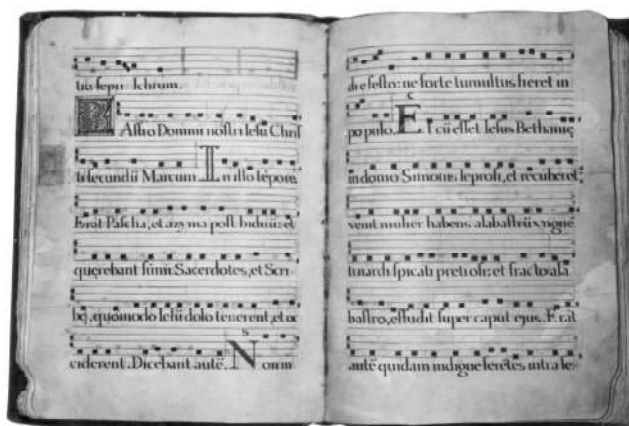 tra sepulchrum.
PAssio Domini nostri Iesu Chris
ti secundũ Marcum. In illo tẽpore.
Erat Pascha, et azyma post biduũ: et
quęrebant sũmi Sacerdotes, et Scri
bę, quomodo Iesũ dolo tenerent, et oc
ciderent. Dicebant autẽ. S Non in
die festo: ne forte tumultus fieret in
populo. C Et cũ esset Iesus Bethanię
in domo Simonis leprosi, et recũberet:
venit mulier habens alabastrũ unguẽ
ti nardi spicati pretiosi: et fracto ala
bastro, effudit super caput ejus. Erãt
autẽ quidam indigne ferẽtes intra se